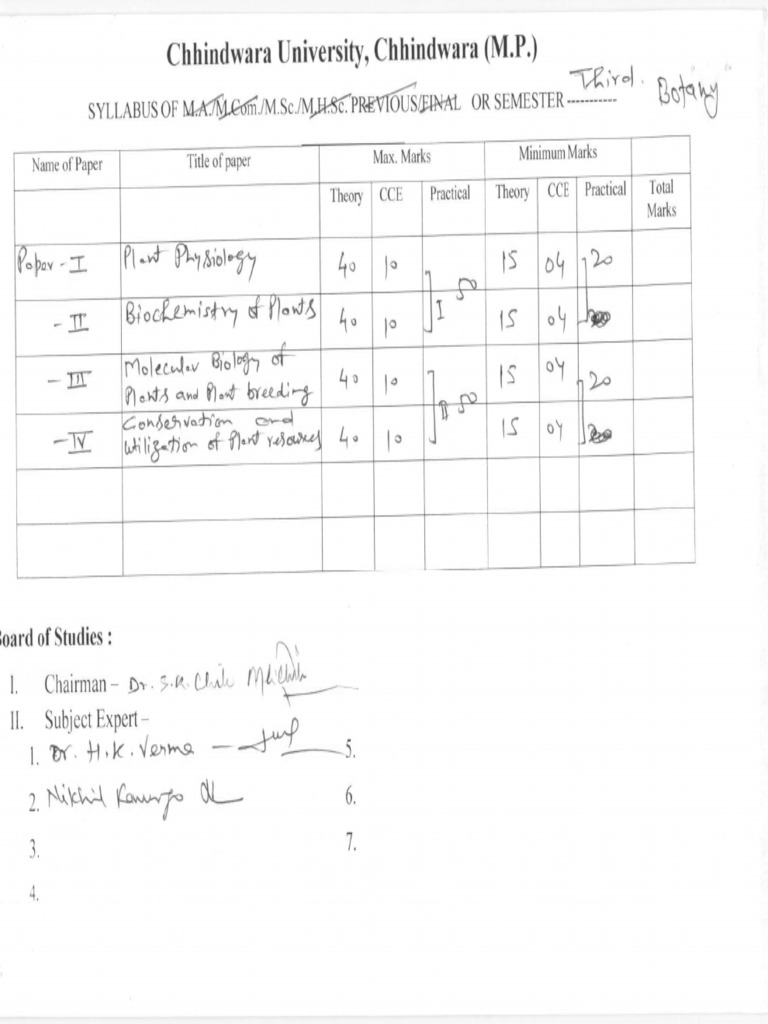 Chhindwara University, Chhindwara (M.P.)
SYLLABUS OF M.A./M.Com./M.Sc./M.H.Sc. PREVIOUS/FINAL OR SEMESTER ----------- Third. Botany
Name of Paper Title of paper Max. Marks Minimum Marks
Theory CCE Practical Theory CCE Practical Total Marks
Paper - I Plant Physiology 40 10 15 04 20
I 50
- II Biochemistry of Plants 40 10 15 04
- III Molecular Biology of Plants and Plant breeding 40 10 15 04 20
II 50
- IV Conservation and utilization of Plant resources 40 10 15 04
Board of Studies :
I. Chairman – Dr. S.K.
II. Subject Expert –
1. Dr. H.K. Verma 5.
2. Nikhil 6.
3. 7.
4.